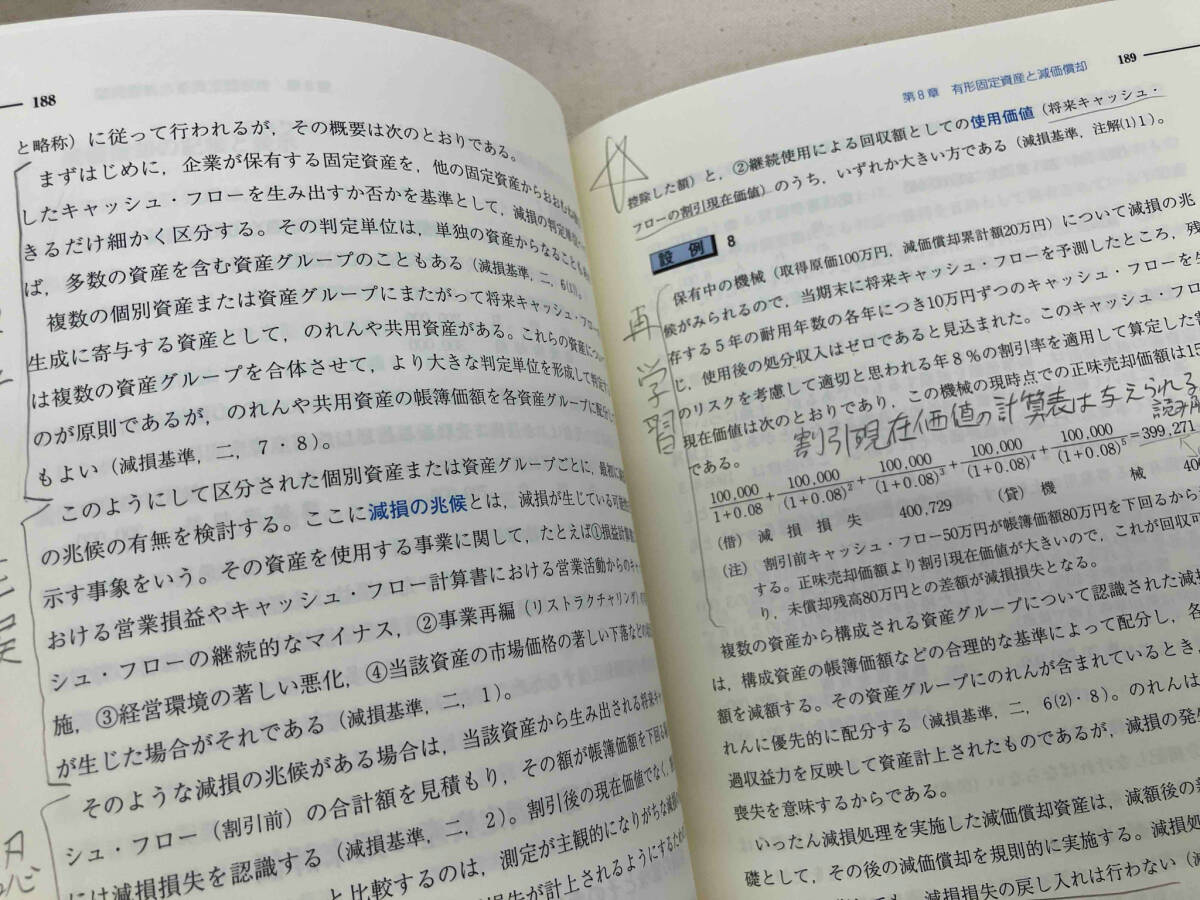 188
と略称）に従って行われるが，その概要は次のとおりである。
まずはじめに，企業が保有する固定資産を，他の固定資産からおおむね
したキャッシュ・フローを生み出すか否かを基準として，減損の判定単位
きるだけ細かく区分する。その判定単位は，単独の資産からなることも
ば，多数の資産を含む資産グループのこともある（減損基準，二，6(1)）。
複数の個別資産または資産グループにまたがって将来キャッシュ・フロー
生成に寄与する資産として，のれんや共用資産がある。これらの資産につい
は複数の資産グループを合体させて，より大きな判定単位を形成して判定
のが原則であるが，のれんや共用資産の帳簿価額を各資産グループに配分
もよい（減損基準，二，7・8）。
このようにして区分された個別資産または資産グループごとに，最初に
の兆候の有無を検討する。ここに減損の兆候とは，減損が生じている可能性
示す事象をいう。その資産を使用する事業に関して，たとえば①損益計算書
おける営業損益やキャッシュ・フロー計算書における営業活動からのキャ
シュ・フローの継続的なマイナス，②事業再編（リストラクチャリング）の
施，③経営環境の著しい悪化，④当該資産の市場価格の著しい下落などの
が生じた場合がそれである（減損基準，二，1）。
そのような減損の兆候がある場合は，当該資産から生み出される将来キャ
シュ・フロー（割引前）の合計額を見積もり，その額が帳簿価額を下回る
には減損損失を認識する（減損基準，二，2）。割引後の現在価値でなく，
と比較するのは，測定が主観的になりがちな減損
損失が計上されるようにするため
第8章 有形固定資産と減価償却
189
控除した額）と，②継続使用による回収額としての使用価値（将来キャッシュ・
フローの割引現在価値）のうち，いずれか大きい方である（減損基準，注解(1)1）。
設例 8
再学習
保有中の機械（取得原価100万円，減価償却累計額20万円）について減損の兆
候がみられるので，当期末に将来キャッシュ・フローを予測したところ，残
存する5年の耐用年数の各年につき10万円ずつのキャッシュ・フローを生
じ，使用後の処分収入はゼロであると見込まれた。このキャッシュ・フロー
のリスクを考慮して適切と思われる年8％の割引率を適用して算定した割
現在価値は次のとおりであり，この機械の現時点での正味売却価額は15
である。
割引現在価値の計算表は与えられる
100,000/1+0.08+100,000/(1+0.08)²+100,000/(1+0.08)³+100,000/(1+0.08)⁴+100,000/(1+0.08)⁵=399,271
（借） 減損損失 400,729 （貸） 機械 400
（注） 割引前キャッシュ・フロー50万円が帳簿価額80万円を下回るから
する。正味売却価額より割引現在価値が大きいので，これが回収可
り，未償却残高80万円との差額が減損損失となる。
複数の資産から構成される資産グループについて認識された減損
は，構成資産の帳簿価額などの合理的な基準によって配分し，各
額を減額する。その資産グループにのれんが含まれているとき，
れんに優先的に配分する（減損基準，二，6(2)・8）。のれんは
過収益力を反映して資産計上されたものであるが，減損の発
喪失を意味するからである。
いったん減損処理を実施した減価償却資産は，減額後の
礎として，その後の減価償却を規則的に実施する。減損処
減損損失の戻し入れは行わない（減